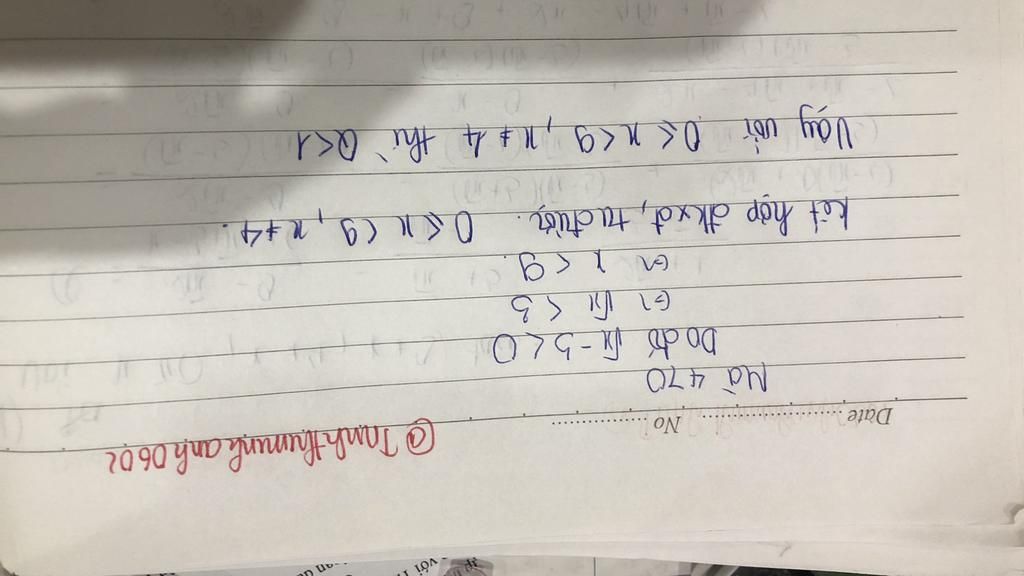 Date: .................... No: ....................
@Tanhthuminhanh0602
Mà 4>0
Do đó √x - 3 < 0
⇔ √x < 3
⇔ x < 9.
Kết hợp đkxđ, ta được: 0 ≤ x < 9, x ≠ 4.
Vậy với 0 ≤ x < 9, x ≠ 4 thì Q < 1